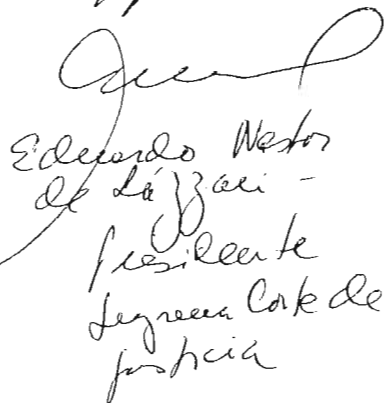 Eduardo Néstor
de Lázzari -
Presidente
Suprema Corte de
Justicia